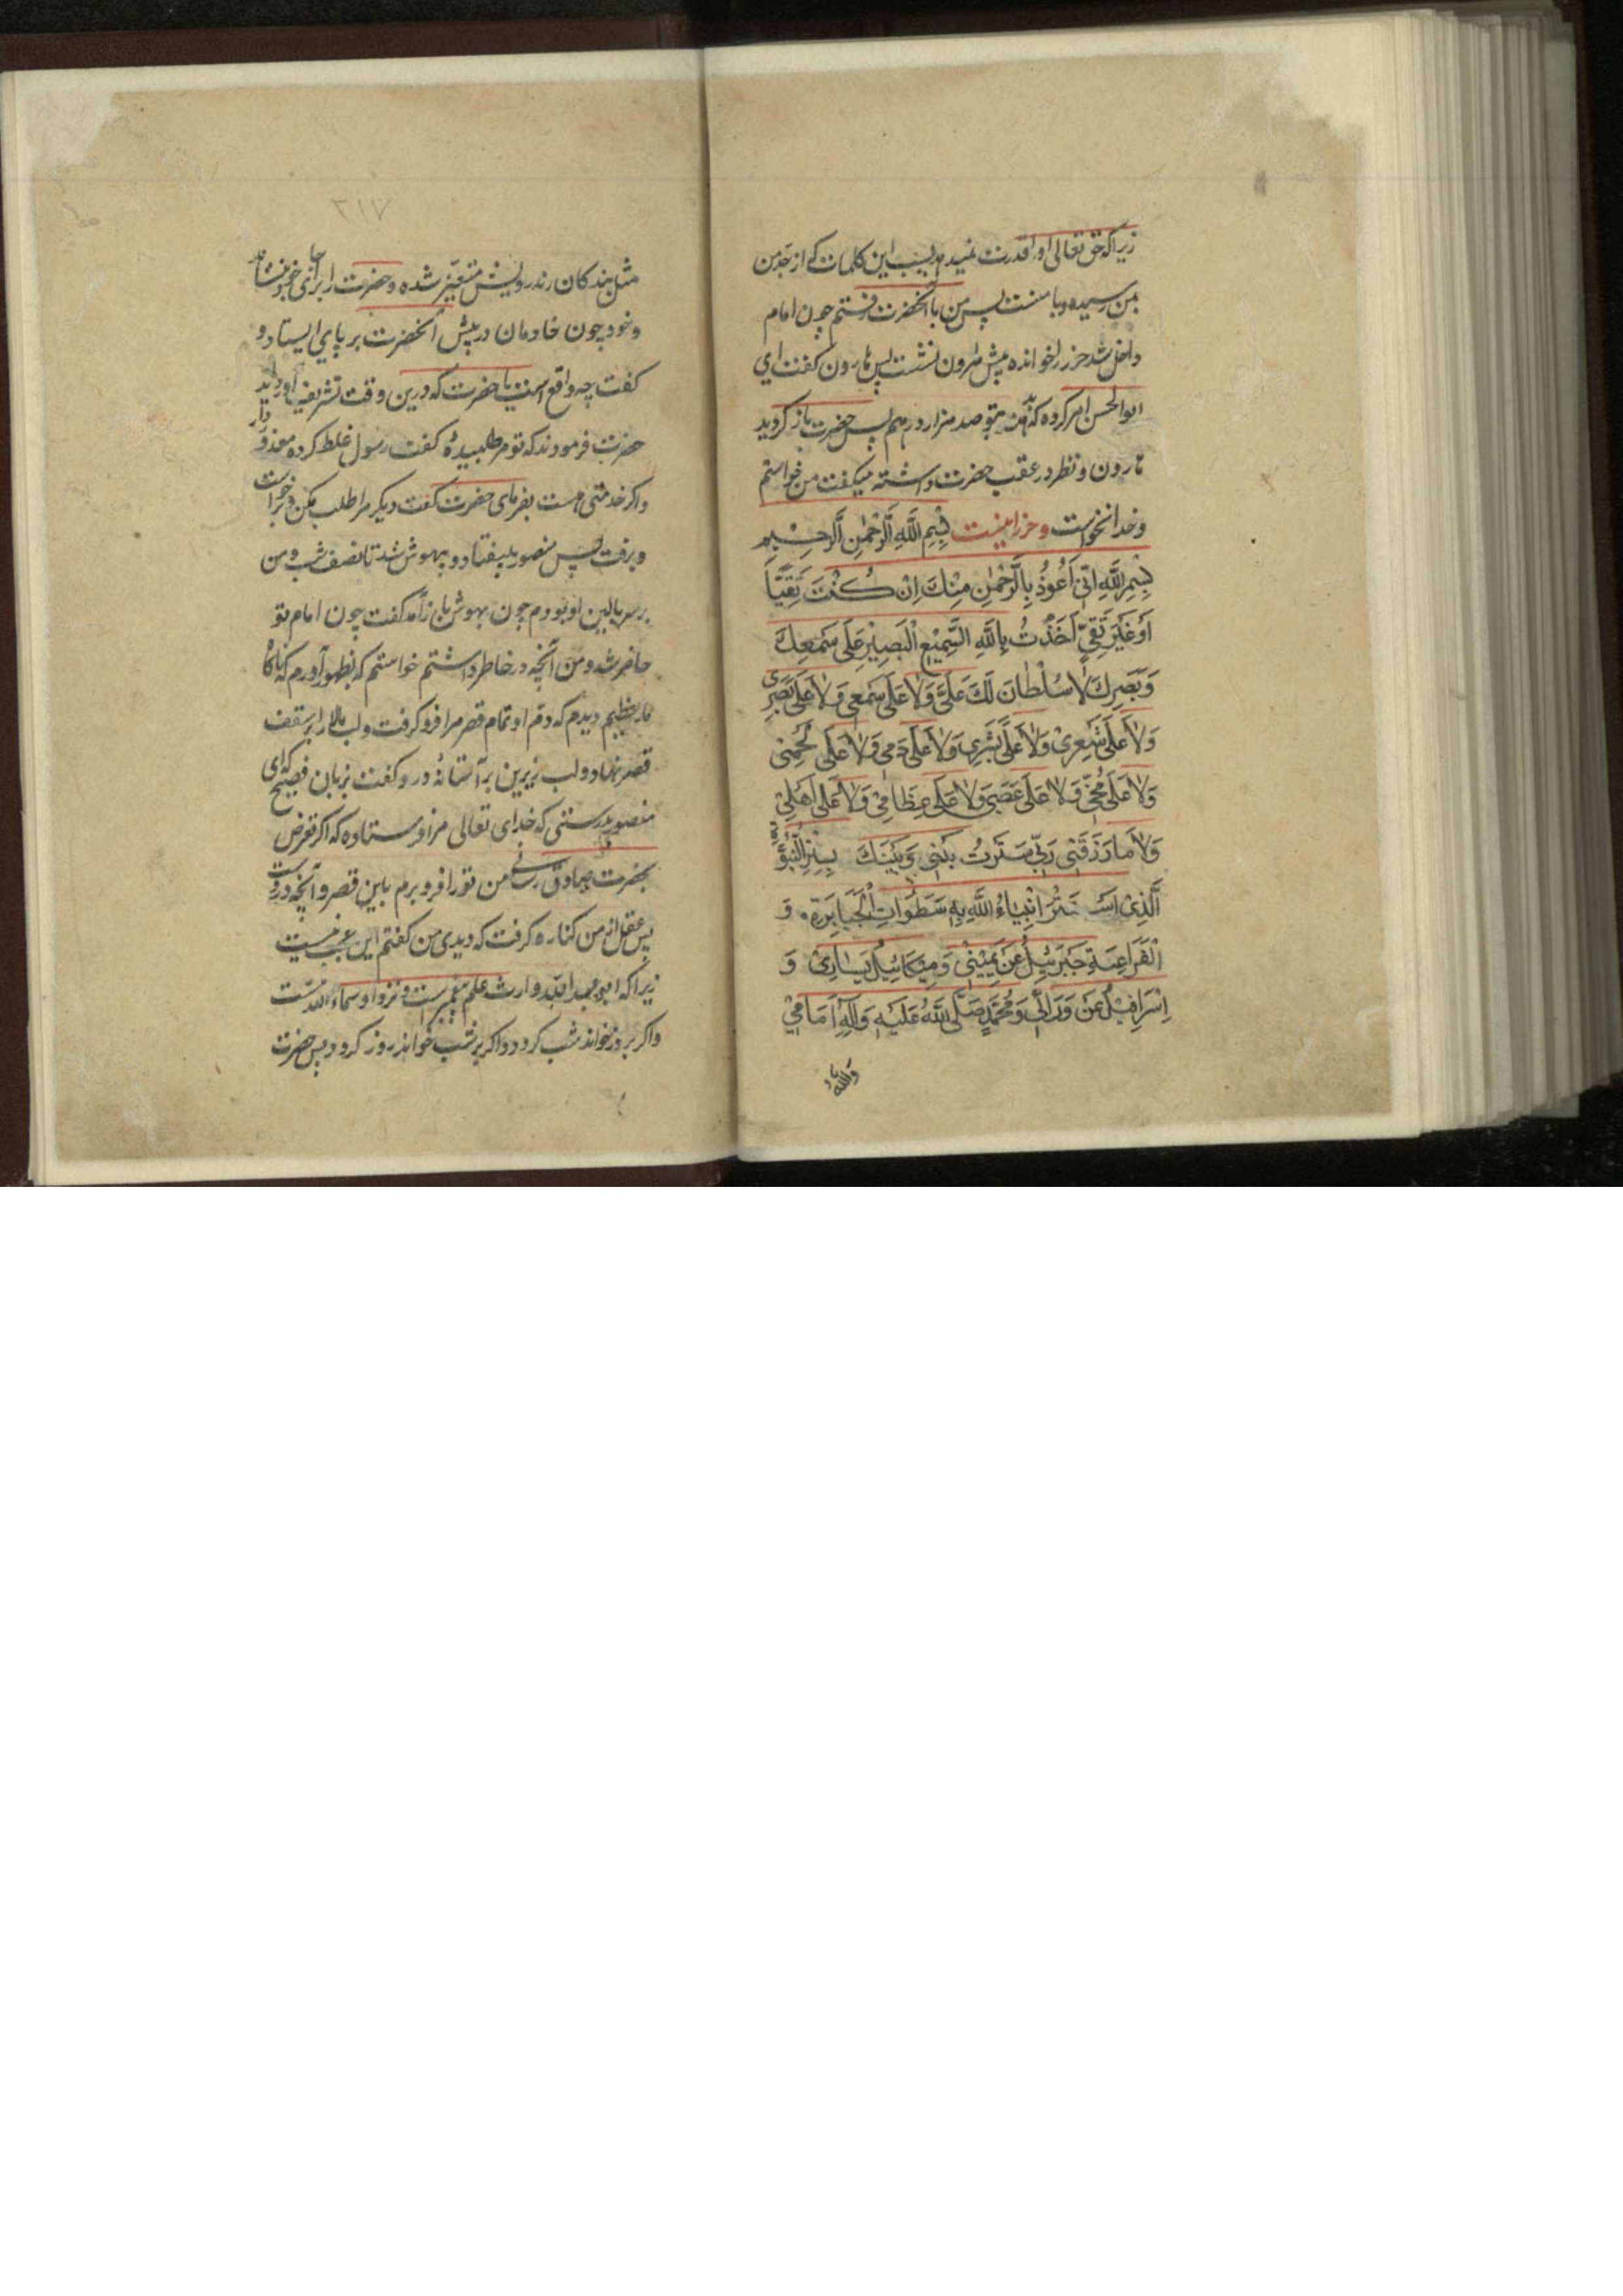 زیرا که حق تعالی او را قدرت نمیدهد بسبب این کلمات که از جد من
بمن رسیده و با منست پس من با آنحضرت رفتم چون امام
داخل شد حرز را خوانده پیش هارون نشست پس هارون گفت ای
ابوالحسن امر کرده که بدهند بتو صد هزار درهم پس حضرت باز گردید
هارون و نظر در عقب حضرت داشته میگفت من خواستم
و خدا نخواست و حرز اینست بِسْمِ اللَّهِ الرَّحْمٰنِ الرَّحِيْمِ
بِسْمِ اللَّهِ اِنّي اَعُوْذُ بِالرَّحْمٰنِ مِنْكَ اِنْ كُنْتَ تَقِيًّا
اَوْ غَيْرَ تَقِيٍّ اَخَذْتُ بِاللَّهِ السَّمِيْعِ الْبَصِيْرِ عَلَى سَمْعِكَ
وَبَصَرِكَ لَا سُلْطَانَ لَكَ عَلَيَّ وَلَا عَلَى سَمْعِي وَلَا عَلَى بَصَرِي
وَلَا عَلَى شَعْرِيْ وَلَا عَلَى بَشَرِي وَلَا عَلَى دَمِي وَلَا عَلَى لَحْمِي
وَلَا عَلَى مُخِّي وَلَا عَلَى عَصَبِي وَلَا عَلَى عِظَامِيْ وَلَا عَلَى اَهْلِيْ
وَلَا مَا رَزَقَنِي رَبِّي سَتَرْتُ بَيْنِي وَبَيْنَكَ بِسِتْرِ النُّبُوَّةِ
الَّذِيْ اسْتَتَرَ اَنْبِيَاءُ اللَّهِ بِهِ سَطَوَاتِ الْجَبَابِرَةِ وَ
الْفَرَاعِنَةِ جَبْرَئِيْلُ عَنْ يَمِيْنِيْ وَمِيْكَائِيْلُ يَسَارِيْ وَ
اِسْرَافِيْلُ عَنْ وَرَائِي وَمُحَمَّدٌ صَلَّى اللَّهُ عَلَيْهِ وَآلِهِ اَمَامِيْ
وَاللَّهُ
٣١٧
مثل بندگان رنگ رویش متغیر شده و حضرت را بر جای خود نشاند
و خود چون خادمان در پیش آنحضرت بر پای ایستاد و
گفت چه واقع است یا حضرت که درین وقت تشریف آوردید
حضرت فرمودند که تو مرا طلبیدهٔ گفت رسول غلط کرده معذور دار
و اگر خدمتی هست بفرمای حضرت گفت دیگر مرا طلب مکن و برخواست
و برفت پس منصور بیفتاد و بیهوش شد تا نصف شب و من
بر سر بالین او بودم چون بهوش باز آمد گفت چون امام تو
حاضر شد و من آنچه در خاطر داشتم خواستم که بظهور آورم که ناگاه
مار عظیم دیدم که دم او تمام قصر مرا فرو گرفت و لب بالا را بر سقف
قصر نهاد و لب زیرین بر آستانهٔ در و گفت بزبان فصیح که ای
منصور بدرستی که خدای تعالی مرا فرستاده که اگر تعرض
بحضرت صادق رسانی من تو را فرو برم باین قصر و آنچه دروست
پس عقل از من کناره گرفت که دیدی من گفتم این عجب نیست
زیرا که ابی عبد الله وارث علم پیغمبر است و نزد او اسماء اللهست
و اگر بروز خواند شب گردد و اگر بر شب خواند روز گردد پس حضرت